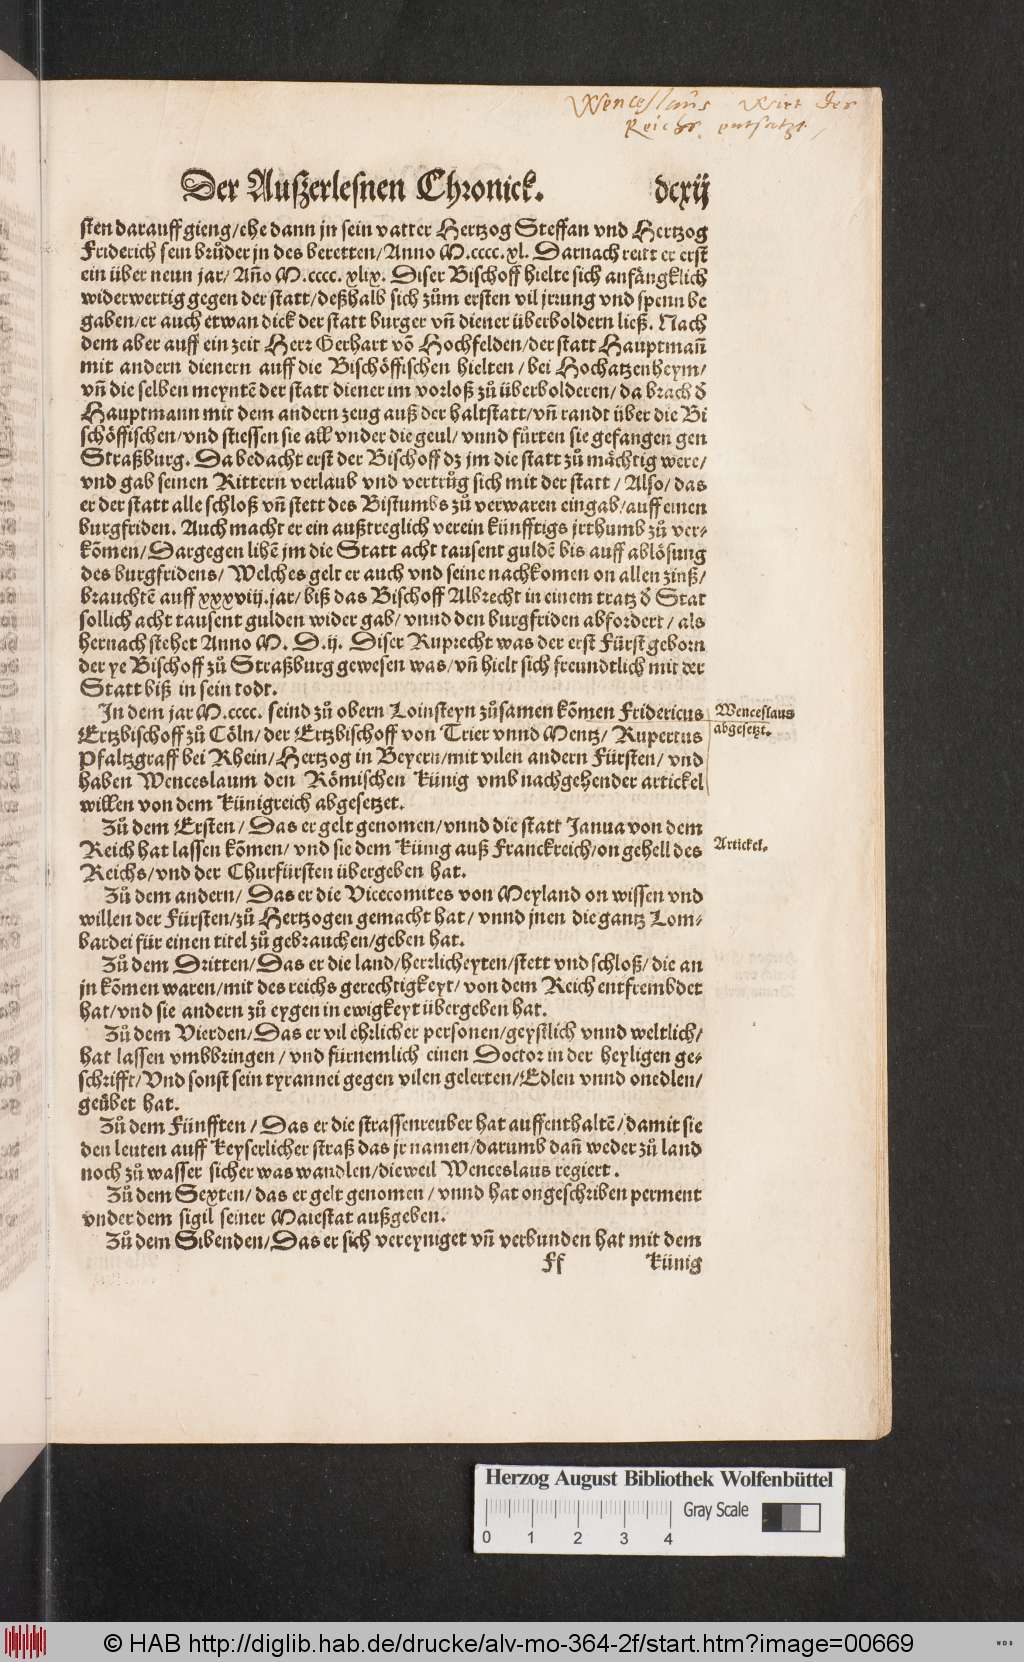 Wenceslaus Wirt des
Reichs entsatzt,
Der Außerlesnen Chronick. dcxij
sten darauff gieng/ehe dann jn sein vatter Hertzog Steffan vnd Hertzog
Friderich sein brůder jn des beretten/Anno M.cccc.xl. Darnach reitt er erst
ein über neun jar/ Ao M.cccc. xlix. Diser Bischoff hielte sich anfängklich
widerwertig gegen der statt/deßhalb sich zům ersten vil jrrung vnd spenn be
gaben/er auch etwan dick der statt burger vñ diener überboldern ließ. Nach
dem aber auff ein zeit Herr Gerhart võ Hochfelden/der statt Hauptmañ
mit andern dienern auff die Bischöffischen hielten/bei Hochatzenheym/
vñ die selben meyntẽ der statt diener im vorloß zů überbolderen/da brach ð
Hauptmann mit dem andern zeug auß der haltstatt/vñ randt über die Bi
schöffischen/vnd stiessen sie all vnder die geul/ vnnd fůrten sie gefangen gen
Straßburg. Da bedacht erst der Bischoff dz jm die statt zů mächtig were/
vnd gab seinen Rittern verlaub vnd vertrůg sich mit der statt/Also/das
er der statt alle schloß vñ stett des Bistumbs zů verwaren eingab/auff einen
burgfriden. Auch macht er ein außtreglich verein künfftigs jrthumb zů ver-
kõmen/Dargegen lihẽ jm die Statt acht tausent guldẽ bis auff ablösung
des burgfridens/Welches gelt er auch vnd seine nachkomen on allen zinß/
brauchtẽ auff xxxviij.jar/ biß das Bischoff Albrecht in einem tratz ð Stat
sollich acht tausent gulden wider gab/vnnd den burgfriden abfordert/als
hernach stehet Anno M. D.ij. Diser Ruprecht was der erst Fürst geborn
der ye Bischoff zů Straßburg gewesen was/vñ hielt sich freundtlich mit der
Statt biß in sein todt.
In dem jar M.cccc. seind zů obern Loinsteyn zůsamen kõmen Fridericus
Ertzbischoff zů Cöln/der Ertzbischoff von Trier vnnd Mentz/ Rupertus
Pfaltzgraff bei Rhein/Hertzog in Beyern/mit vilen andern Fürsten/vnd
haben Wenceslaum den Römischen Künig vmb nachgehender artickel
willen von dem Künigreich abgesetzet.
Wenceslaus
abgesetzt.
Zů dem Ersten/ Das er gelt genomen/vnnd die statt Janua von dem
Reich hat lassen kõmen/ vnd sie dem Künig auß Franckreich/on gehell des
Reichs/vnd der Churfürsten übergeben hat.
Artickel.
Zů dem andern/ Das er die Vicecomites von Meyland on wissen vnd
willen der Fürsten/zů Hertzogen gemacht hat/vnnd jnen die gantz Lom-
bardei für einen titel zů gebrauchen/geben hat.
Zů dem Dritten/Das er die land/herrlicheyten/stett vnd schloß/die an
jn kõmen waren/mit des reichs gerechtigkeyt/von dem Reich entfrembdet
hat/vnd sie andern zů eygen in ewigkeyt übergeben hat.
Zů dem Vierden/Das er vil ehrlicher personen/geystlich vnnd weltlich/
hat lassen vmbbringen/vnd fürnemlich einen Doctor in der heyligen ge-
schrifft/Vnd sonst sein tyrannei gegen vilen gelerten/Edlen vnnd onedlen/
geübet hat.
Zů dem Fünfften/Das er die strassenreuber hat auffenthaltẽ/damit sie
den leuten auff Keyserlicher straß das jr namen/darumb dañ weder zů land
noch zů wasser sicher was wandlen/dieweil Wenceslaus regiert.
Zů dem Sexten/das er gelt genomen/vnnd hat ongeschriben perment
vnder dem sigil seiner Maiestat außgeben.
Zů dem Sibenden/Das er sich vereyniget vñ verbunden hat mit dem
Ff Künig
Herzog August Bibliothek Wolfenbüttel
Gray Scale
0 1 2 3 4
© HAB http://diglib.hab.de/drucke/alv-mo-364-2f/start.htm?image=00669